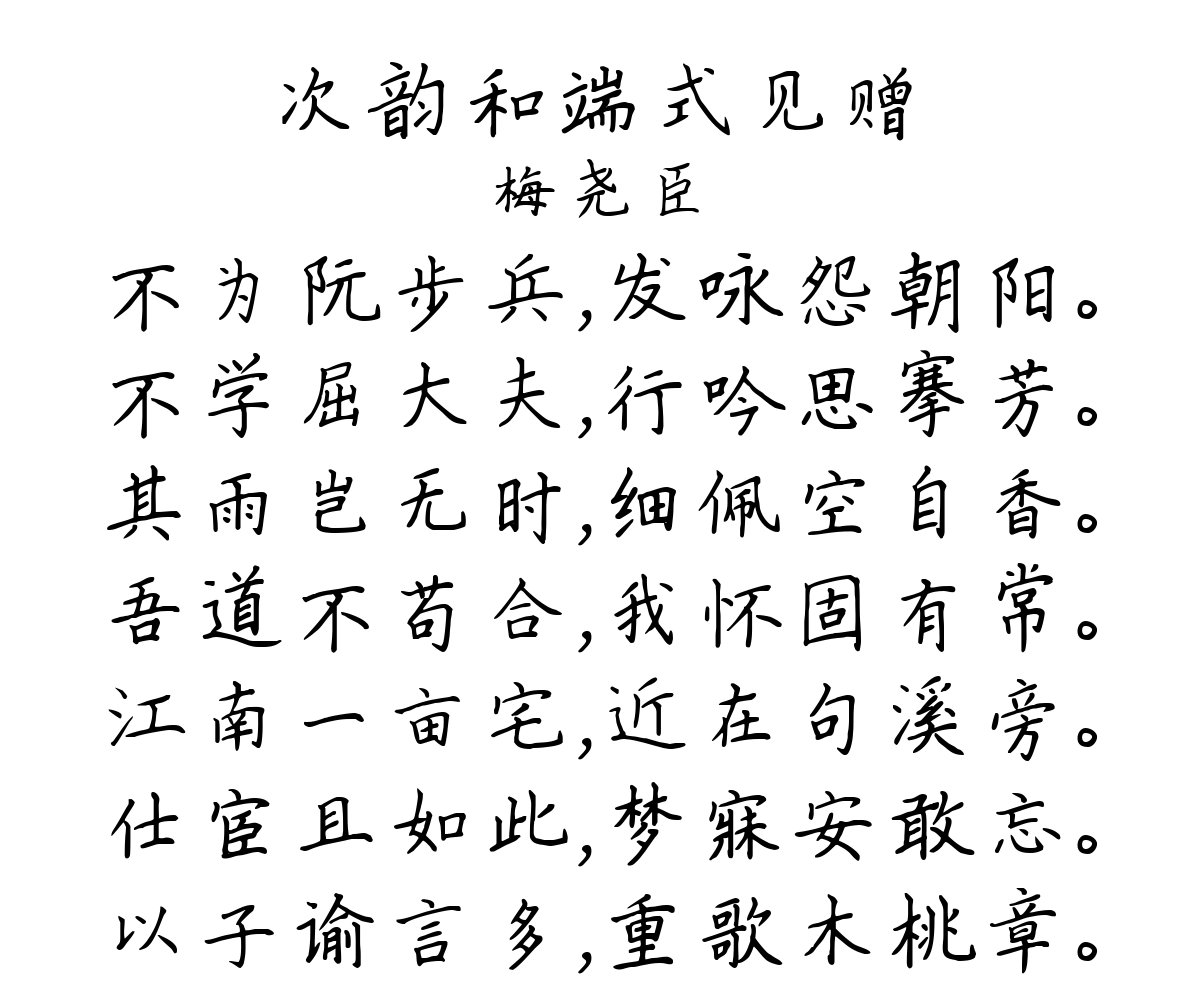 次韵和端式见赠
梅尧臣
不为阮步兵,发咏怨朝阳。
不学屈大夫,行吟思搴芳。
其雨岂无时,细佩空自香。
吾道不苟合,我怀固有常。
江南一亩宅,近在句溪旁。
仕宦且如此,梦寐安敢忘。
以子谕言多,重歌木桃章。